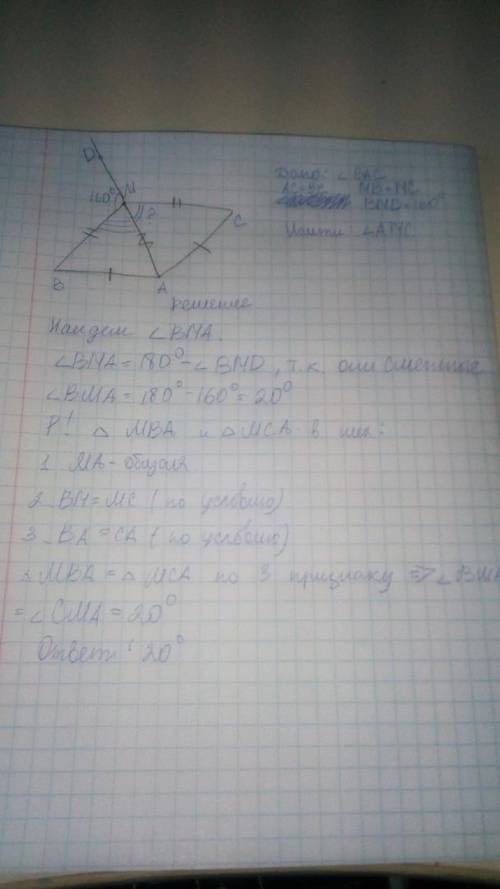 Дано: ∠BAC
AC=BC MB=MC
BMD=160°
Найти ∠AMC
D
M
160°
?
C
B
A
решение
Найдем ∠BMA.
∠BMA=180°-∠BMD, т.к. они смежные
∠BMA=180°-160°=20°
P! △ MBA и △MCA в них:
1. MA-общая
2. BM=MC (по условию)
3. BA=CA (по условию)
△MBA=△MCA по 3 признаку ⇒∠BMA
=∠CMA=20°
Ответ: 20°